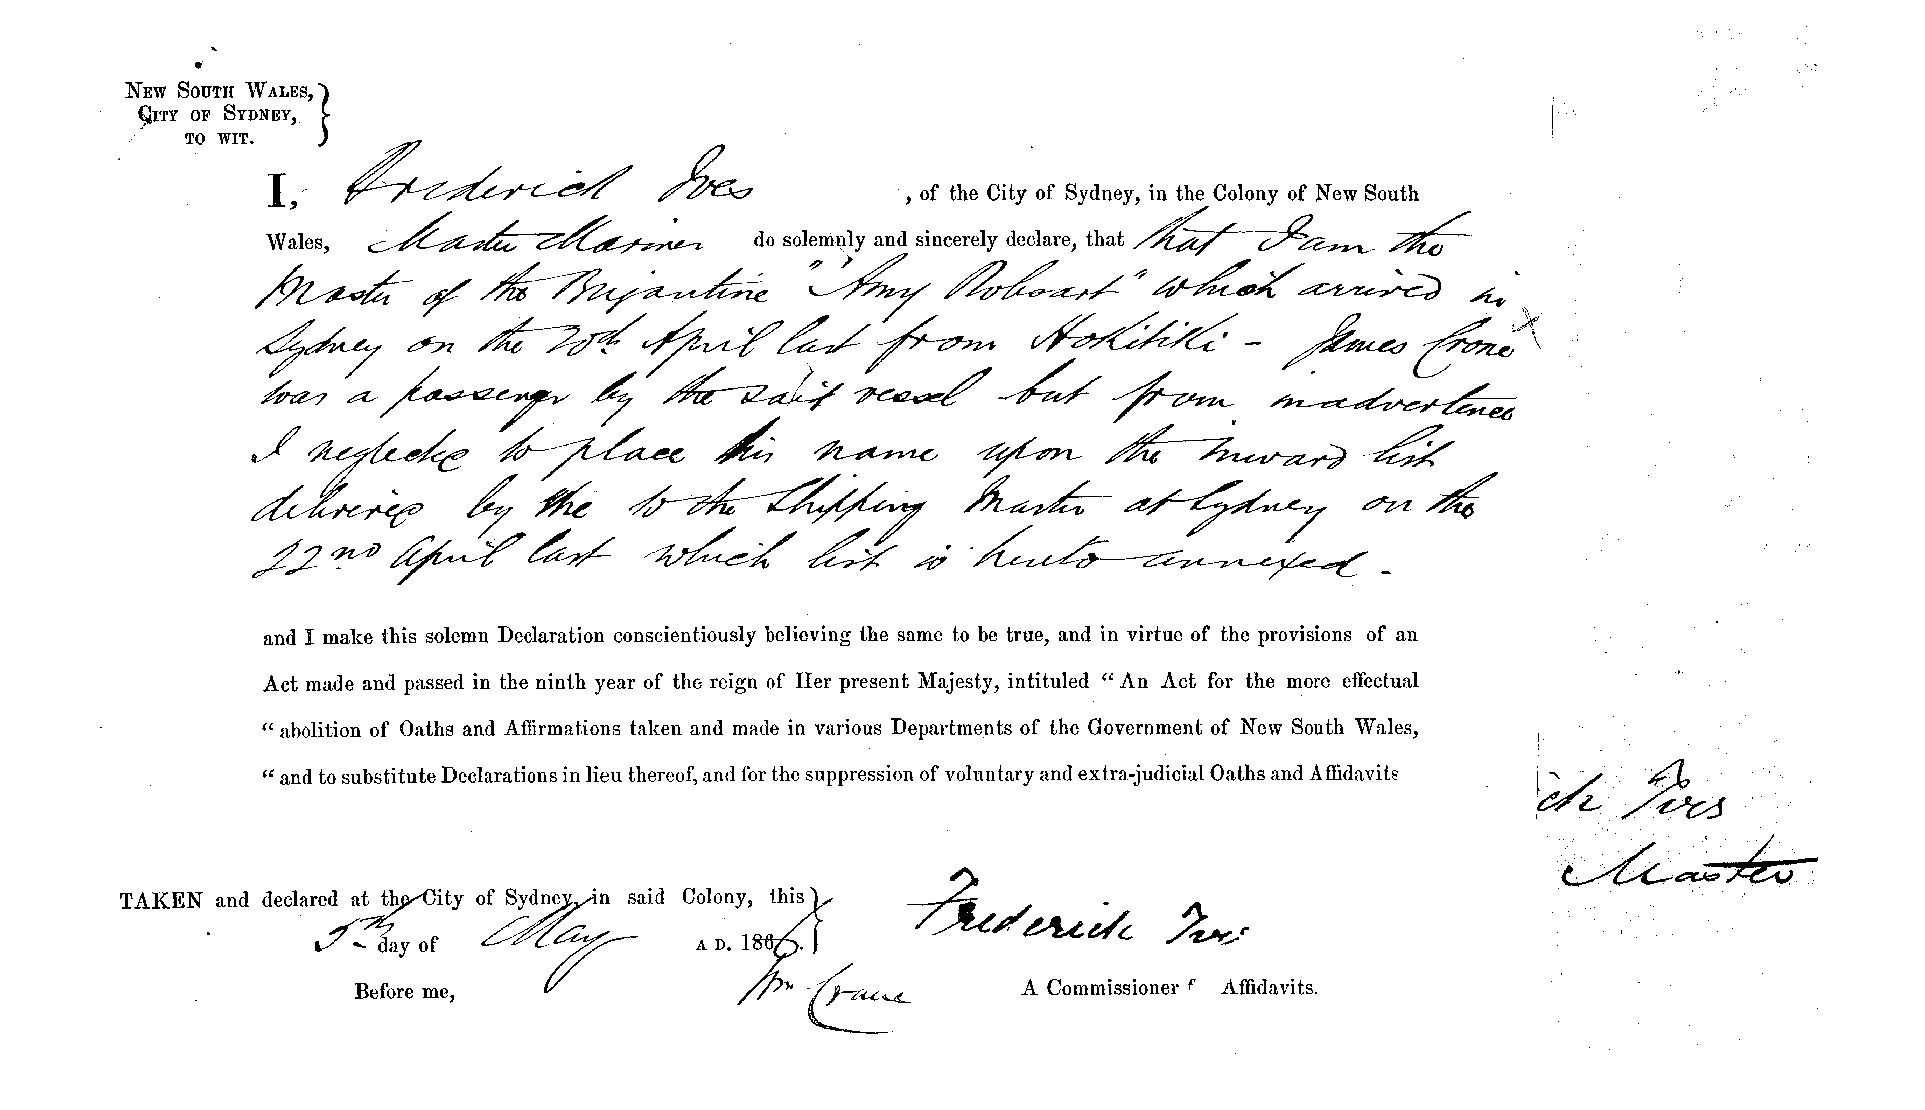 NEW SOUTH WALES,
CITY OF SYDNEY,
TO WIT.
I, Frederick Ives, of the City of Sydney, in the Colony of New South
Wales, Master Mariner do solemnly and sincerely declare, that that I am the
Master of the Brigantine "Amy Robsart" which arrived in
Sydney on the 20th April last from Hokitiki - James Crone
was a passenger by the said vessel but from inadvertence
I neglected to place his name upon the Inward list
delivered by the to the Shipping Master at Sydney on the
22nd April last which list is hereto annexed -
and I make this solemn Declaration conscientiously believing the same to be true, and in virtue of the provisions of an
Act made and passed in the ninth year of the reign of Her present Majesty, intituled "An Act for the more effectual
"abolition of Oaths and Affirmations taken and made in various Departments of the Government of New South Wales,
"and to substitute Declarations in lieu thereof, and for the suppression of voluntary and extra-judicial Oaths and Affidavits
ck Ives
Master
TAKEN and declared at the City of Sydney, in said Colony, this
5th day of May A D. 1866.
Frederick Ives
Before me, Wm Crane A Commissioner f Affidavits.